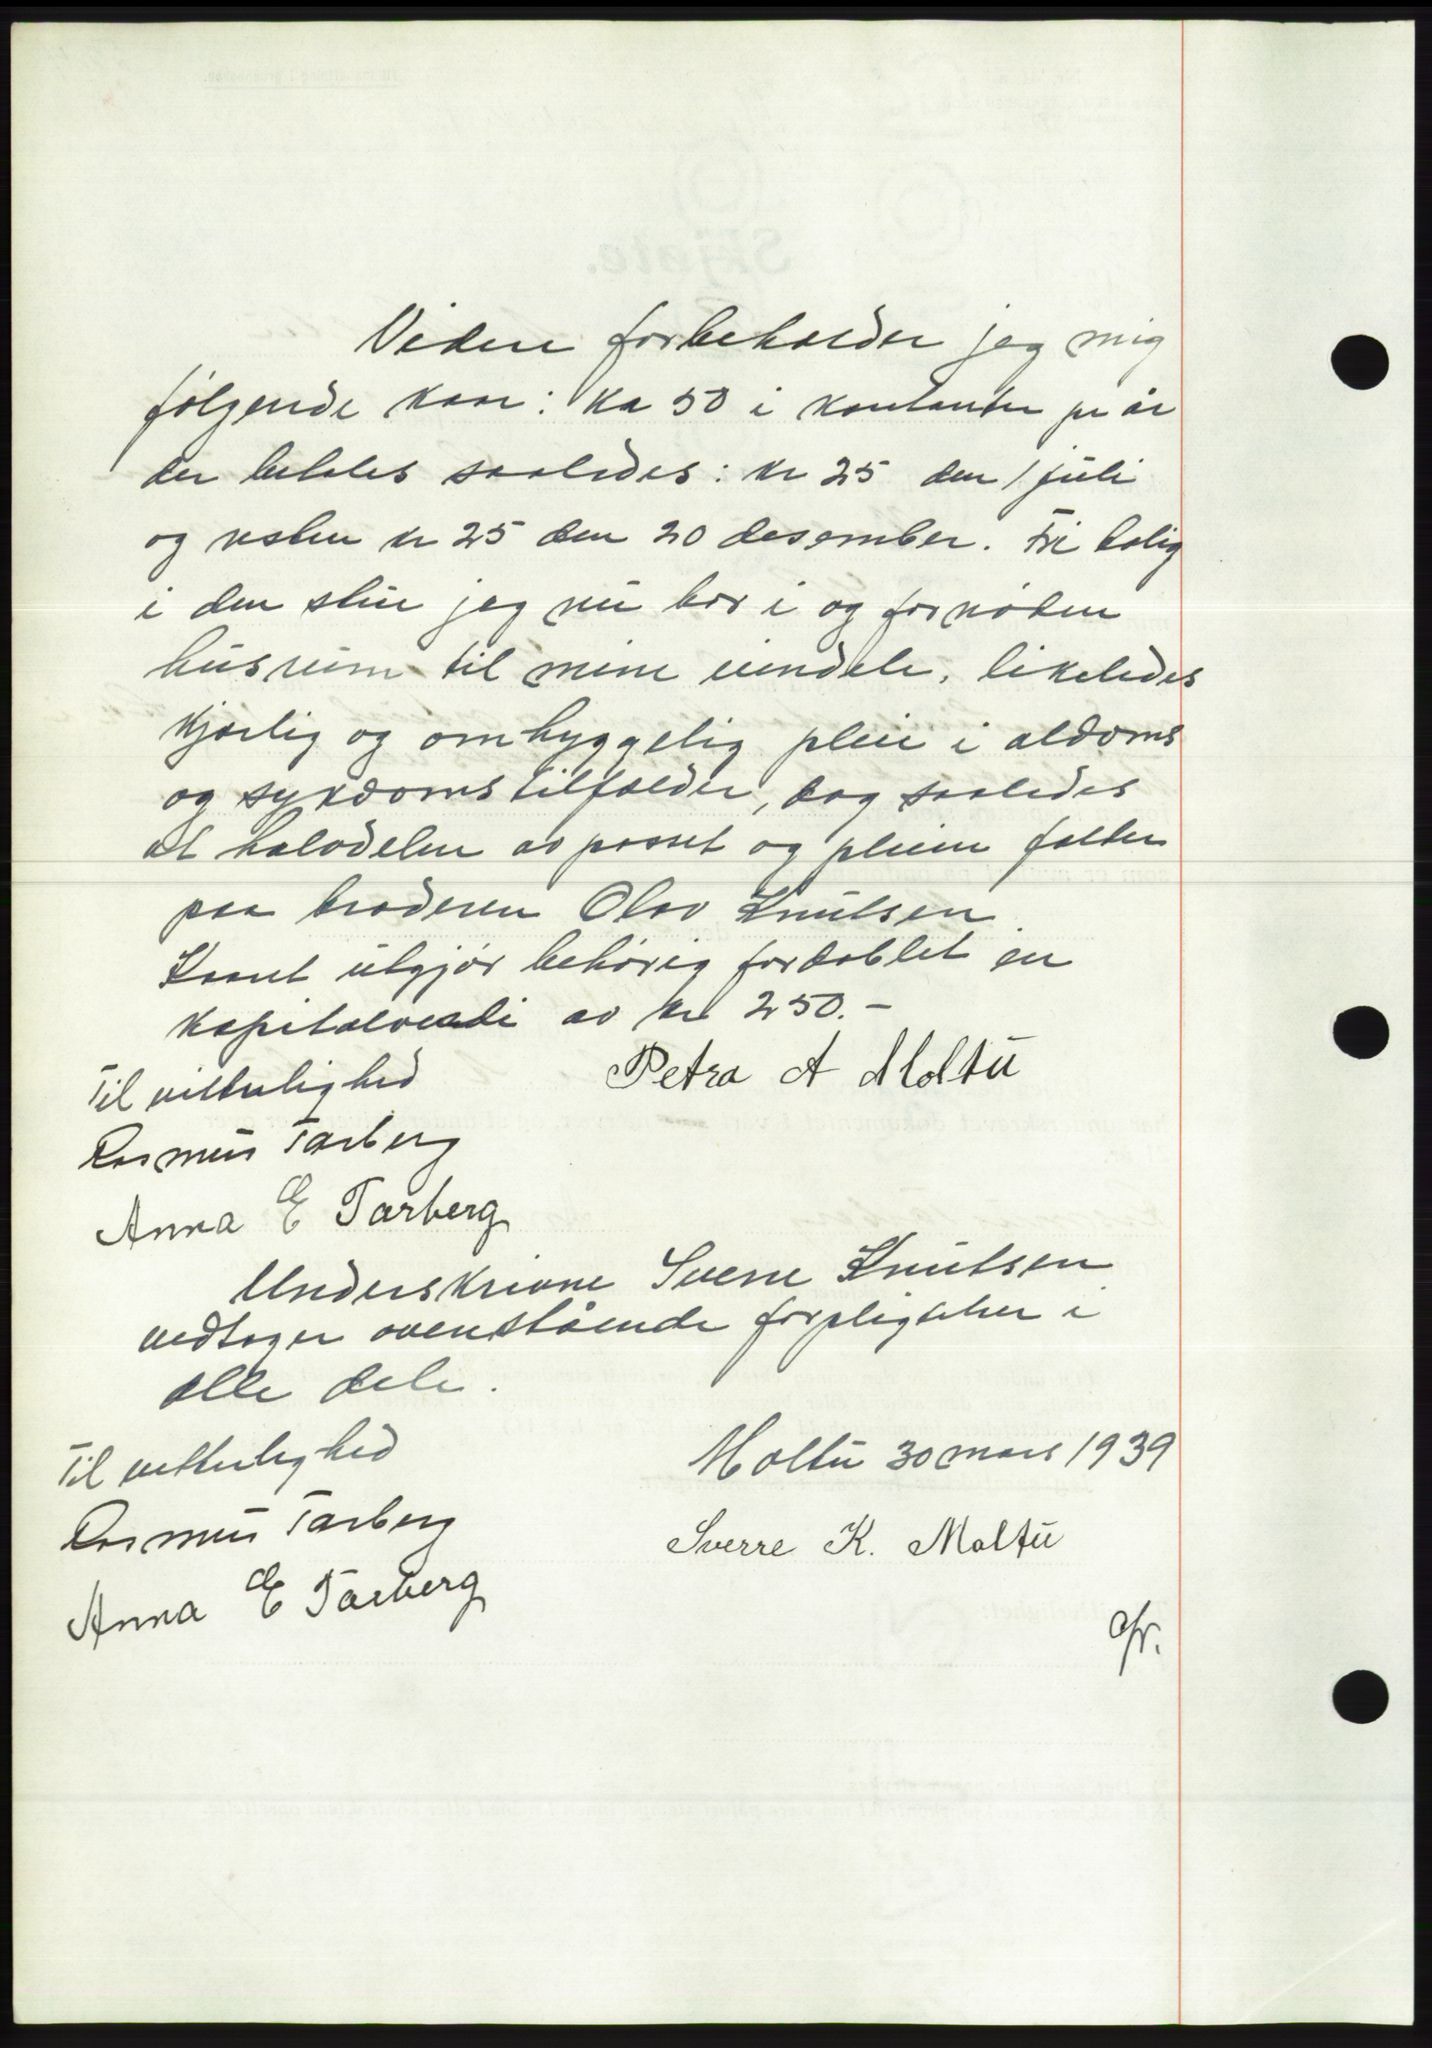 Videre forbeholder jeg mig
følgende kaar: kr 50 i kontanter pr år
der betales saaledes: kr 25 den 1 juli
og resten kr 25 den 20 desember. Fri bolig
i den stue jeg nu bor i og fornøden
husrum til mine eiendele, likeledes
kjærlig og omhyggelig pleie i alдoms
og sykdomstilfælder, dog saaledes
at halvdelen av passet og pleien falder
paa broderen Olav Knutsen
Kaaret utgjør behørig fordoblet en
kapitalverdi av kr 250.-
Petra A Moltu
Til vitterlighed
Rasmus Tarberg
Anna E Tarberg
Underskrivne Sverre Knutsen
vedtager ovenstående forpligtelser i
alle dele.
Til vitterlighed
Moltu 30 mars 1939
Rasmus Tarberg
Sverre K. Moltu
Anna E Tarberg
Skjøte.